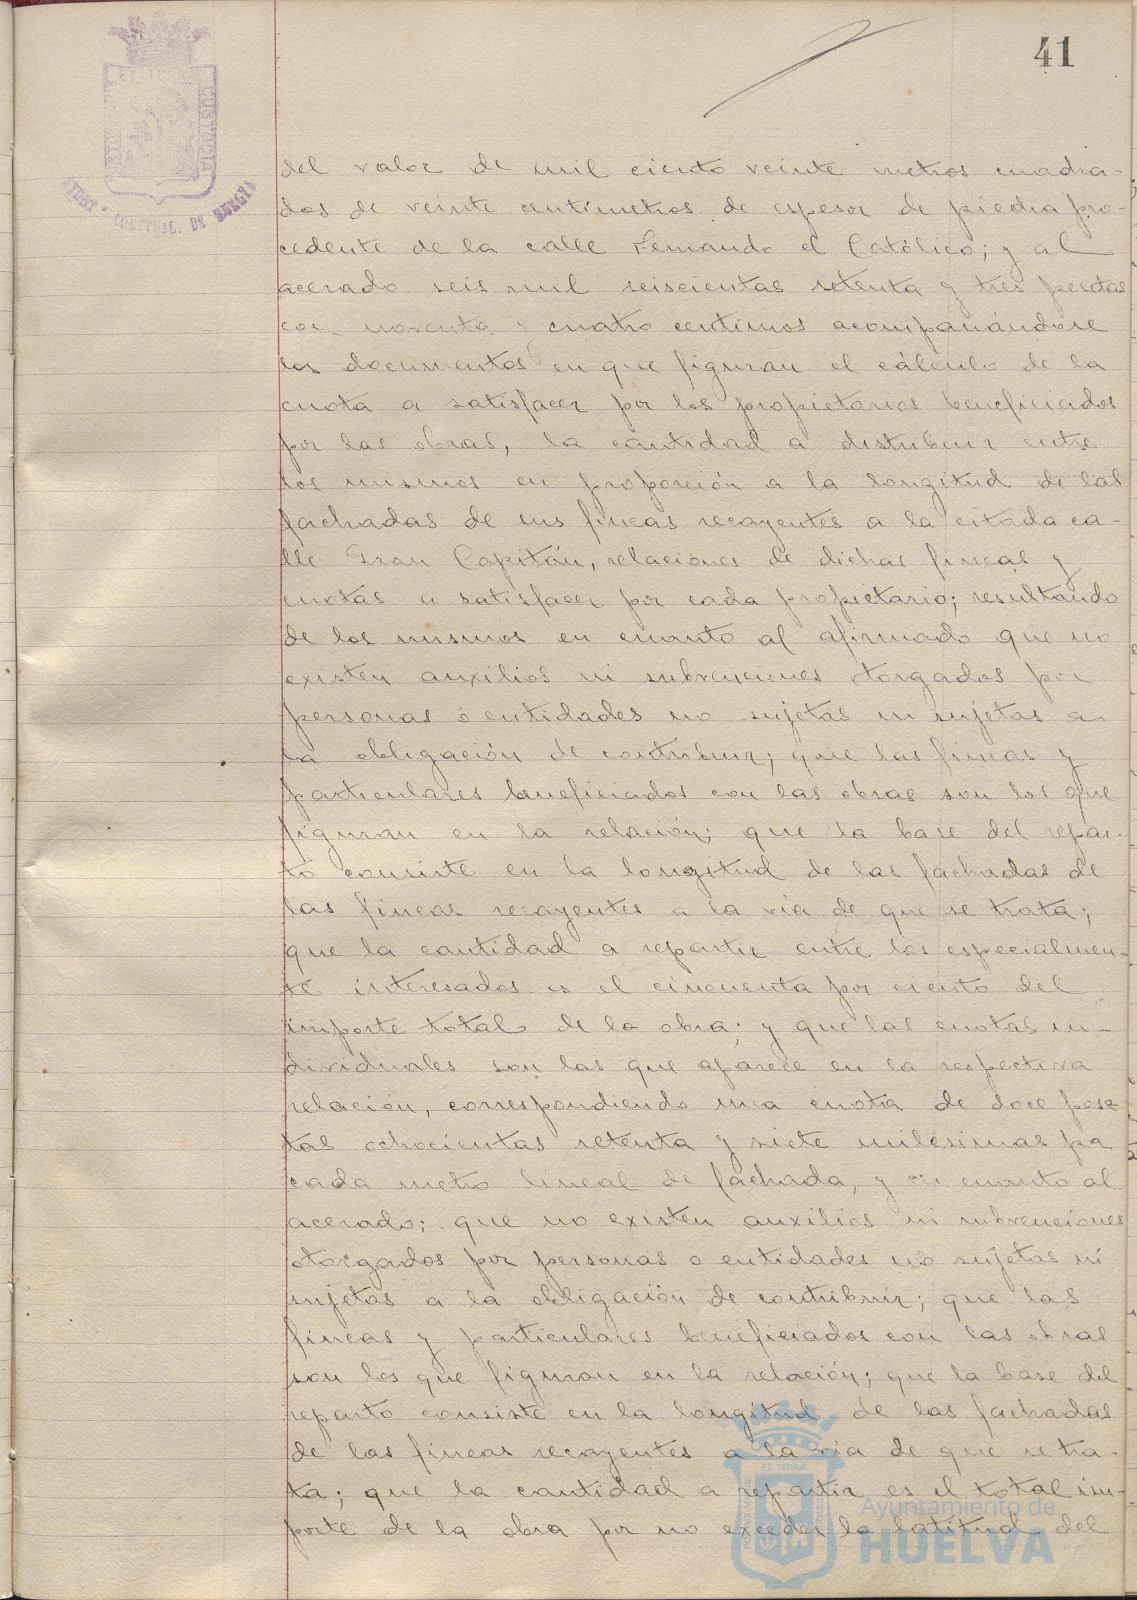 41
del valor de mil ciento veinte metros cuadra-
dos de veinte centímetros de espesor de piedra pro-
cedente de la calle Fernando el Católico; y al
acerado seis mil seiscientas setenta y tres pesetas
con noventa y cuatro centimos acompañándose
los documentos en que figuran el cálculo de la
cuota a satisfacer por los propietarios beneficiados
por las obras, la cantidad a distribuir entre
los mismos en proporción a la longitud de las
fachadas de sus fincas recayentes a la citada ca-
lle Gran Capitán, relaciones de dichas fincas y
cuotas a satisfacer por cada propietario; resultando
de los mismos en cuanto al afirmado que no
existen auxilios ni subvenciones otorgados por
personas o entidades no sujetas ni sujetas a
la obligación de contribuir; que las fincas y
particulares beneficiados con las obras son los que
figuran en la relación; que la base del repar-
to consiste en la longitud de las fachadas de
las fincas recayentes a la via de que se trata;
que la cantidad a repartir entre los especialmen-
te interesados es el cincuenta por ciento del
importe total de la obra; y que las cuotas in-
dividuales son las que aparece en la respectiva
relación, correspondiendo una cuota de doce pese
tas ochocientas setenta y siete milésimas pa
cada metro lineal de fachada, y en cuanto al
acerado; que no existen auxilios ni subvenciones
otorgados por personas o entidades no sujetas ni
sujetas a la obligación de contribuir; que las
fincas y particulares beneficiados con las obras
son los que figuran en la relación; que la base del
reparto consiste en la longitud de las fachadas
de las fincas recayentes a la via de que se tra-
ta; que la cantidad a repartir es el total im-
porte de la obra por no exceder la latitud del
Ayuntamiento de
HUELVA